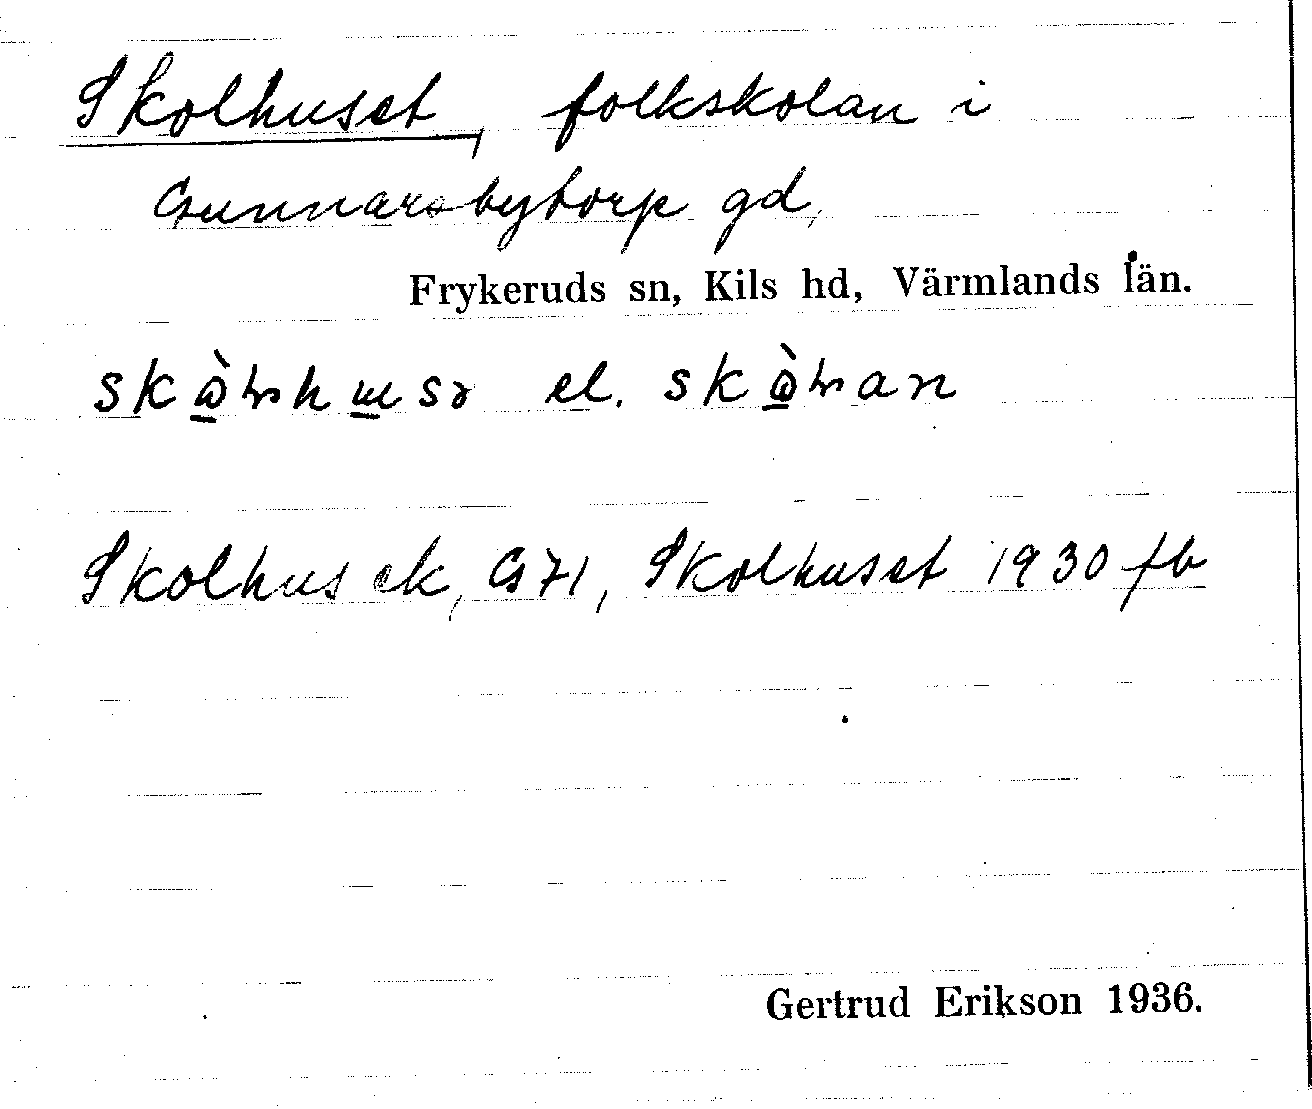 Skolhuset, folkskolan i
Gunnarsbytorp gd,
Frykeruds sn, Kils hd, Värmlands län.
el.
Skolhus ek, G71, Skolhuset 1930 fb
Gertrud Erikson 1936.